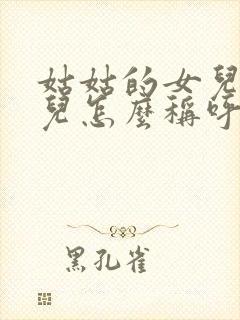 姑姑的女兒
兒怎麼稱呼
黑孔雀